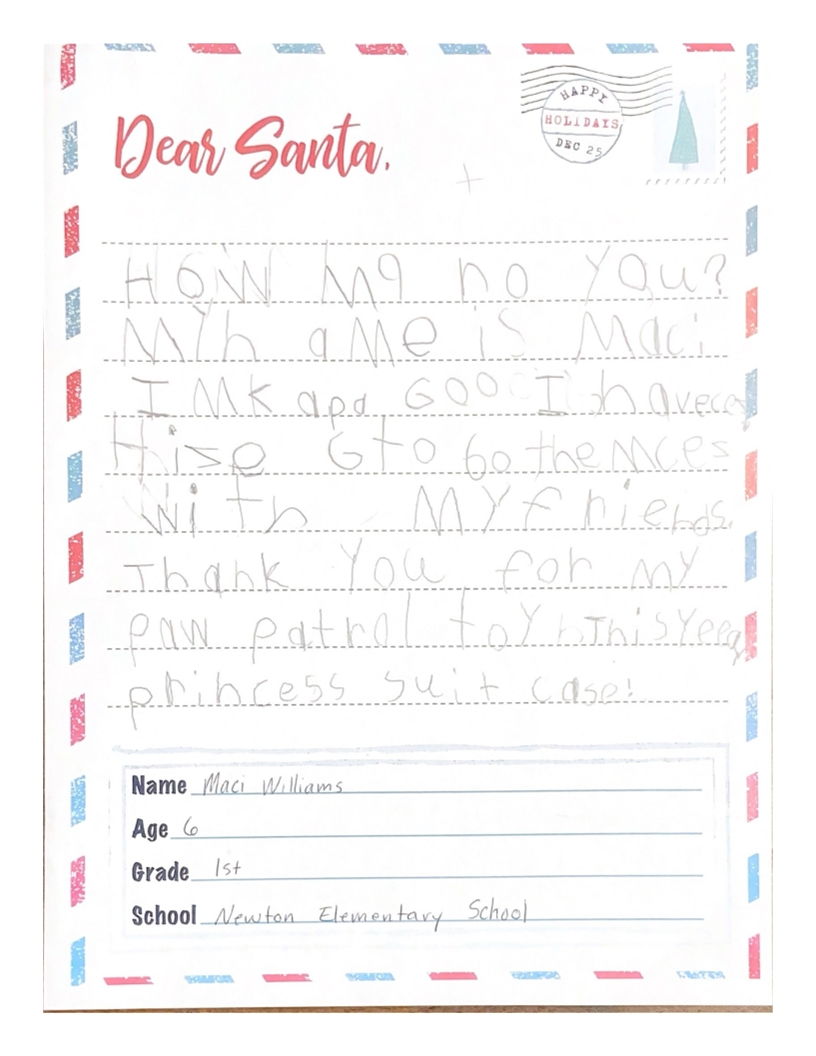 HAPPY
HOLIDAYS
DEC 25
Dear Santa,
HOW Ma no YOU?
MYh aMe is Maci
I MK apd GOO I have
Hise Gto Go the Mces
With MY friends.
Thank You for my
paw patrol toY This Yeer
princess suit case!
Name Maci Williams
Age 6
Grade 1st
School Newton Elementary School